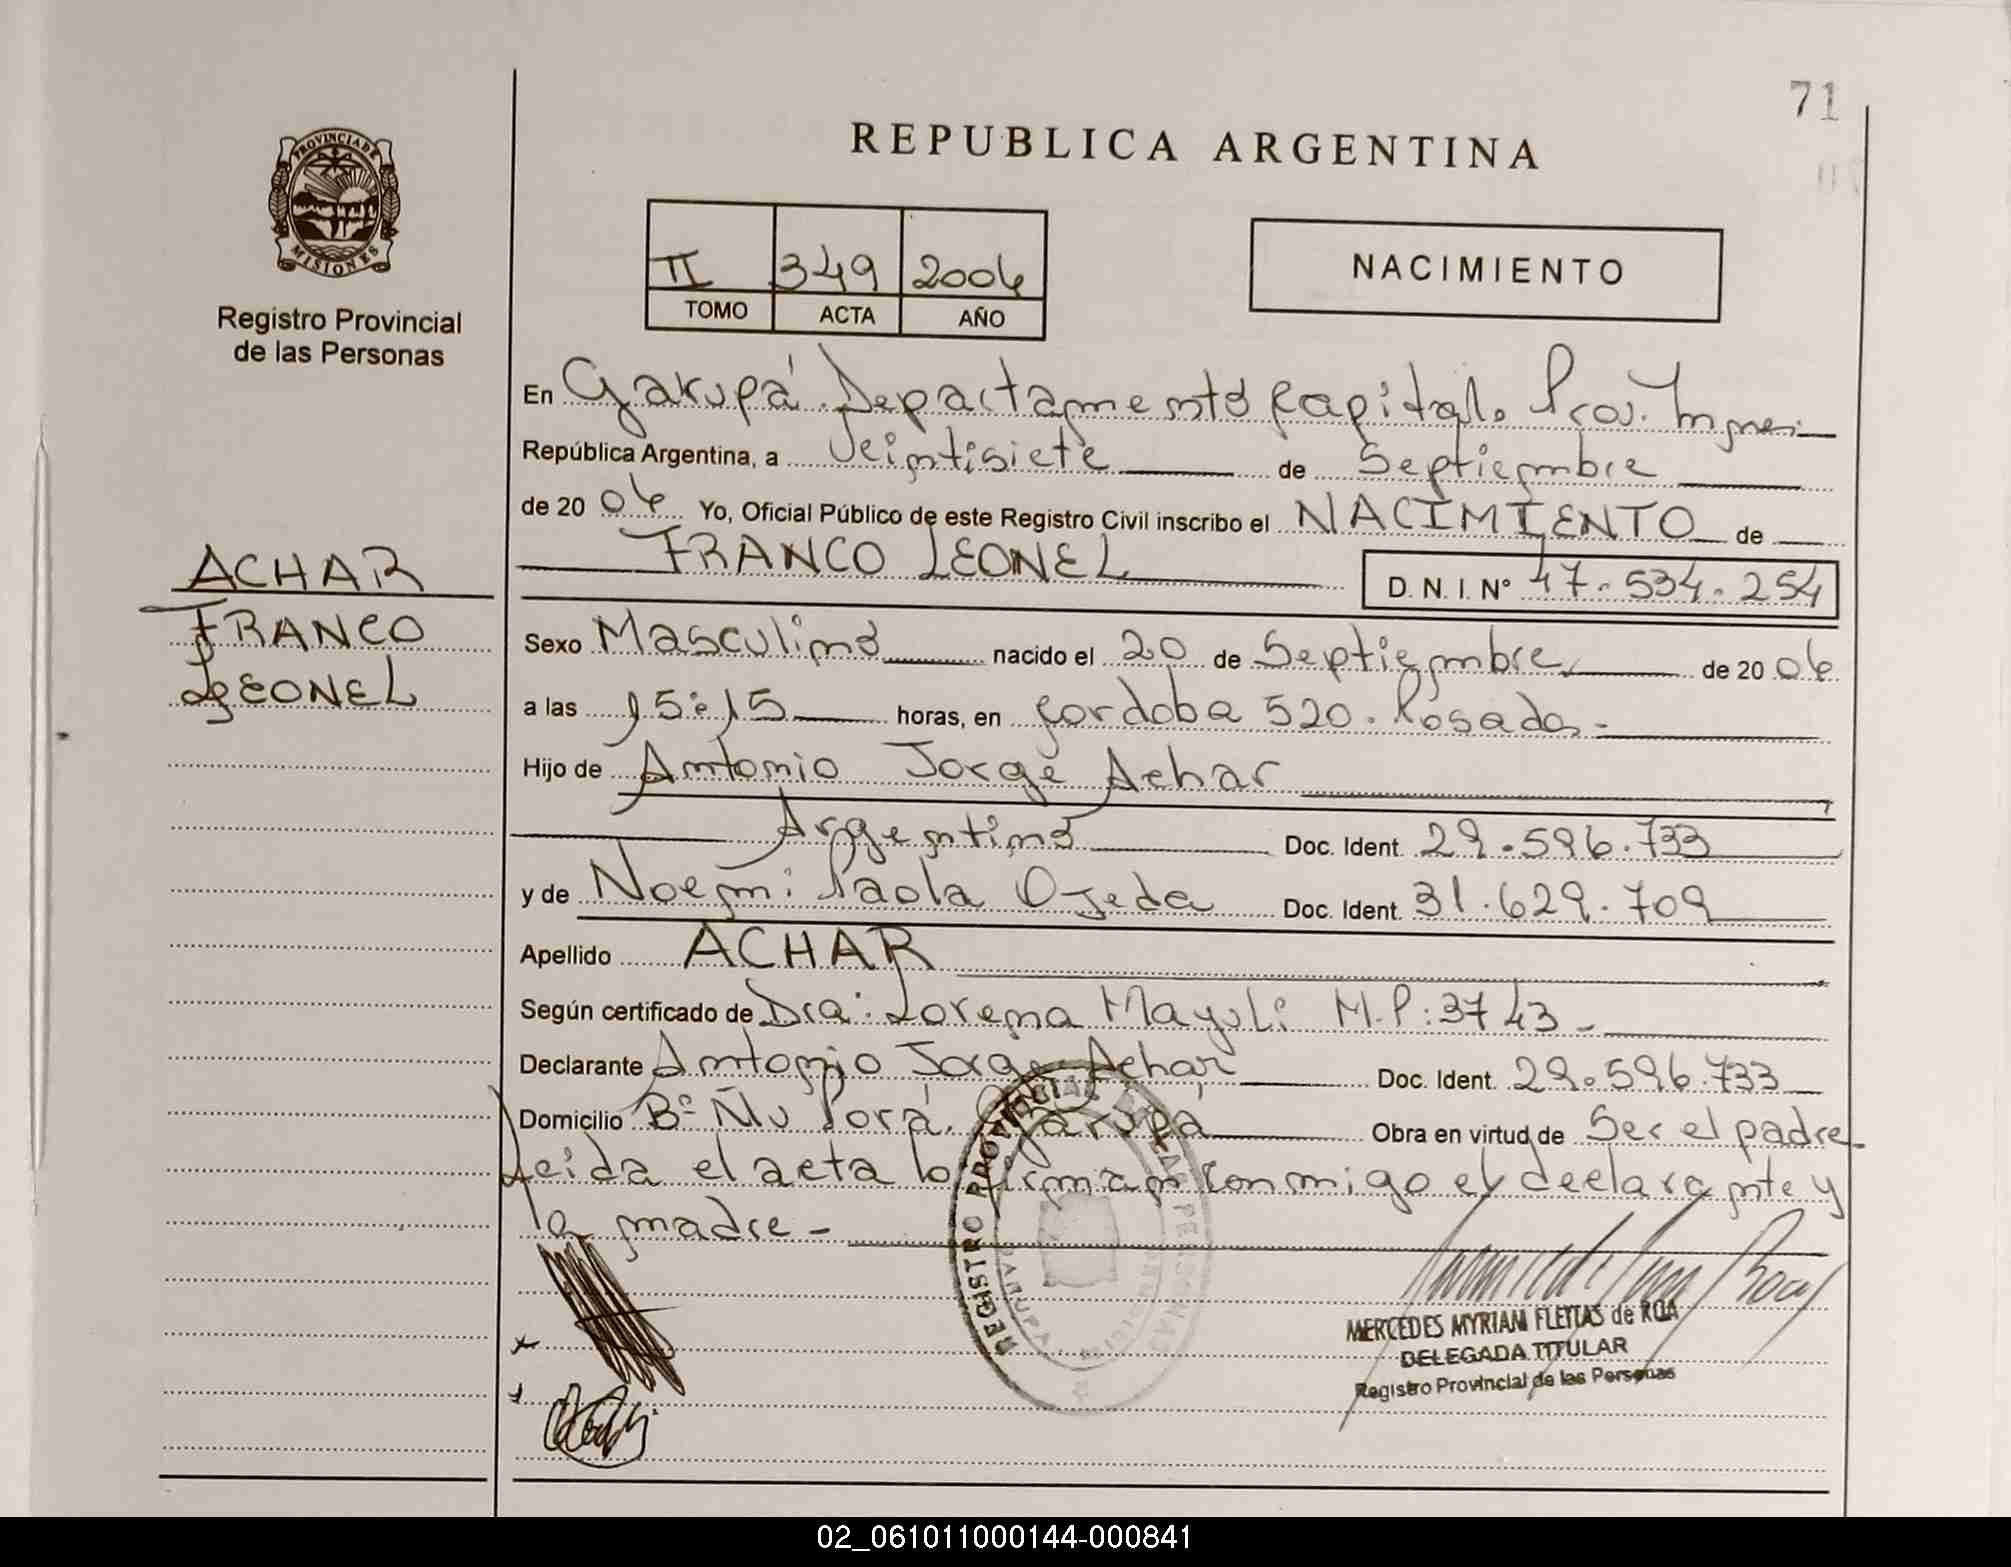 71
PROVINCIA DE
MISIONES
Registro Provincial
de las Personas
REPUBLICA ARGENTINA
II 349 2006
TOMO ACTA AÑO
NACIMIENTO
En Garupá Departamento Capital. Prov. Mnes
República Argentina, a Veintisiete de Septiembre
de 20 06 Yo, Oficial Público de este Registro Civil inscribo el NACIMIENTO de
FRANCO LEONEL D. N. I. N° 47.534.254
ACHAR
FRANCO
LEONEL
Sexo Masculino nacido el 20 de Septiembre de 20 06
a las 15:15 horas, en Cordoba 520. Posadas-
Hijo de Antonio Jorge Achar
Argentino Doc. Ident. 29.596.733
y de Noemi Paola Ojeda Doc. Ident. 31.629.709
Apellido ACHAR
Según certificado de Dra: Lorena Mayuli M.P: 3743-
Declarante Antonio Jorge Achar Doc. Ident. 29.596.733
Domicilio B° Ñu Porá. Garupá Obra en virtud de Ser el padre
Leida el acta lo firman conmigo el declarante y
la madre-
REGISTRO PROVINCIAL DE LAS PERSONAS
GARUPA
MERCEDES MYRIAM FLEITAS de ROA
DELEGADA TITULAR
Registro Provincial de las Personas
02_061011000144-000841